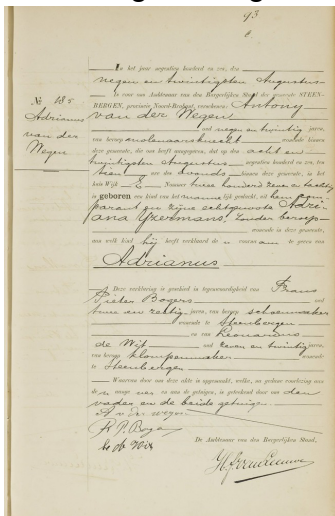 93
In het jaar negentien honderd en zes, den
negen en twintigsten Augustus
is voor ons Ambtenaar van den Burgerlijken Stand der gemeente STEEN-
BERGEN, provincie Noord-Brabant, verschenen: Antony
van der Wegen
oud negen en twintig jaren,
van beroep molenaarsknecht wonende binnen
deze gemeente, die ons heeft aangegeven, dat op den acht en
twintigsten Augustus negentien honderd en zes, ten
tien ure des avonds binnen deze gemeente, in het
huis Wijk E Nummer twee honderd zeven en
is geboren een kind van het mannelijk geslacht, uit hem compa-
rant en zijne echtgenoote Adri-
ana Ykermans, zonder beroep
wonende in deze gemeente,
aan welk kind hij heeft verklaard de voornaam te geven van
Adrianus
Deze verklaring is geschied in tegenwoordigheid van Frans
Pieter Bogers oud
twee en zestig jaren, van beroep schoenmaker
wonende te Steenbergen
en van Leonardus
de Wit oud zeven en twintig jaren,
van beroep klompenmaker wonende
te Steenbergen
Waarvan door ons deze akte is opgemaakt, welke, na gedane voorlezing aan
de comparant en aan de getuigen, is geteekend door ons den
vader en de beide getuigen.
A v der wegen
De Ambtenaar van den Burgerlijken Stand,
No
Adrianus
van der
Wegen